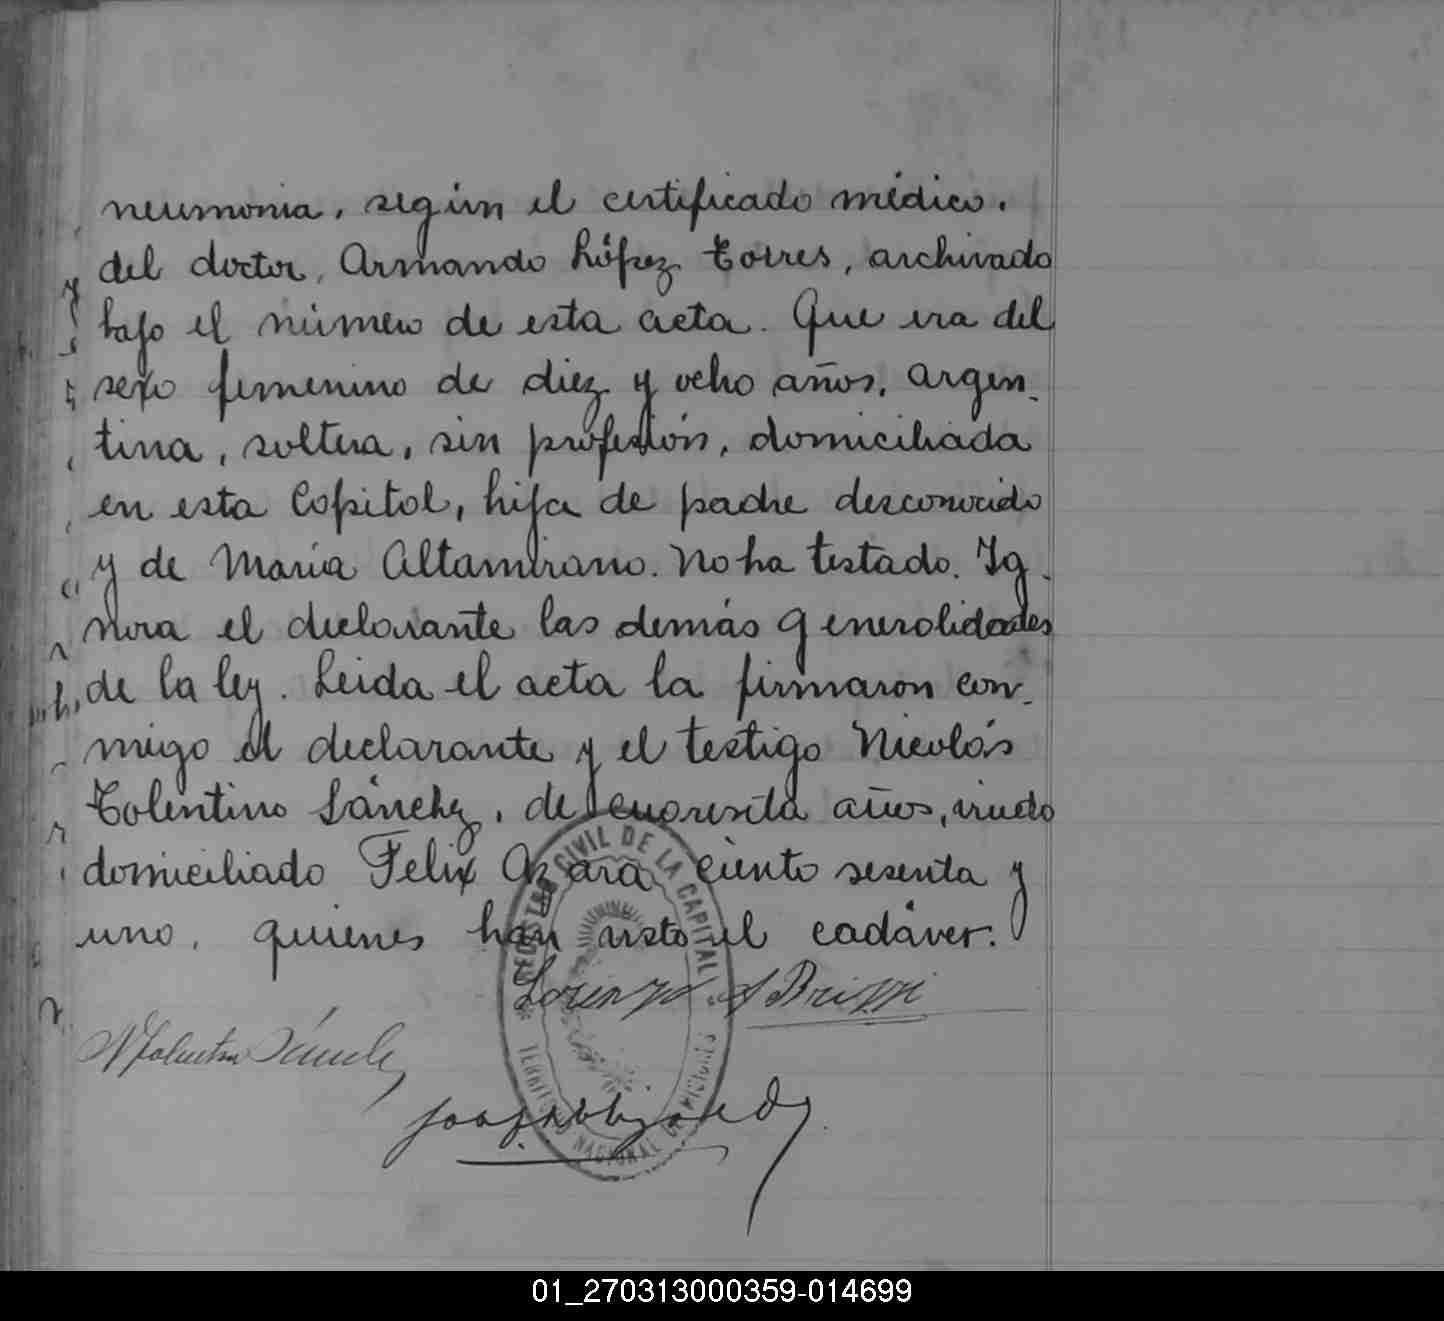 neumonia, según el certificado médico.
del doctor, Armando López Torres, archivado
bajo el número de esta acta. Que era del
sexo femenino de diez y ocho años, argen-
tina, soltera, sin profesión, domiciliada
en esta Capital, hija de padre desconocido
y de María Altamirano. No ha testado. Ig-
nora el declarante las demás generalidades
de la ley. Leida el acta la firmaron con-
migo el declarante y el testigo Nicolás
Tolentino Sánchez, de cuarenta años, viudo
domiciliado Felix Azara ciento sesenta y
uno, quienes han visto el cadáver.
Lorenzo A Brizzi
N Tolentino Sánchez
REGISTRO CIVIL DE LA CAPITAL
TERRITORIO NACIONAL DE MISIONES
01_270313000359-014699